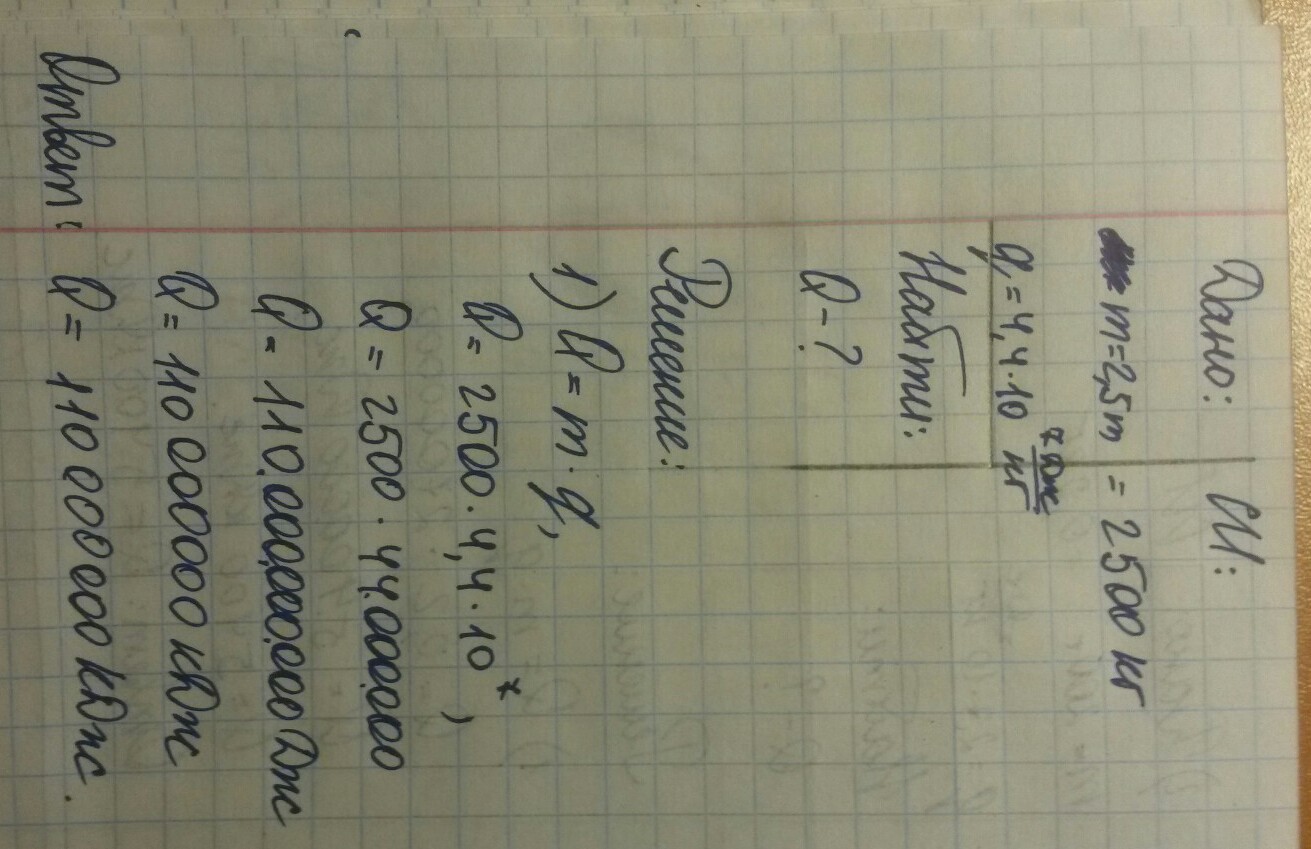 Дано: СИ:
m=2,5т = 2500 кг
q = 4,4·10⁷ Дж/кг
Найти:
Q-?
Решение:
1) Q = m·q,
Q = 2500·4,4·10⁷,
Q = 2500·44.000.000
Q = 110.000.000.000 Дж
Q = 110 000 000 кДж
Ответ: Q = 110 000 000 кДж.